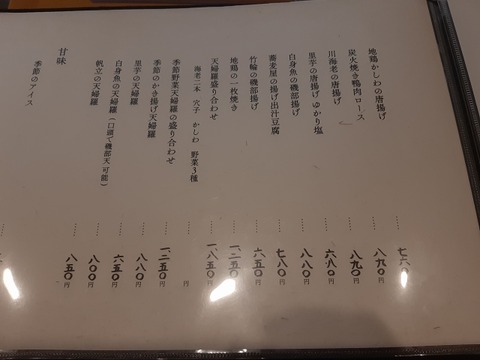 地鶏かしわの唐揚げ …… 七六〇
炭火焼き鴨肉ロース …… 八九〇円
川海老の唐揚げ …… 八九〇円
里芋の唐揚げ ゆかり塩 …… 六八〇円
白身魚の磯部揚げ …… 八八〇円
蕎麦屋の揚げ出汁豆腐 …… 七八〇円
竹輪の磯部揚げ …… 六五〇円
地鶏の一枚焼き …… 一、二五〇円
天婦羅盛り合わせ …… 一、八五〇円
海老二本 穴子 かしわ 野菜3種 円
季節野菜天婦羅の盛り合わせ …… 一、二五〇円
季節のかき揚げ天婦羅 …… 八八〇円
里芋の天婦羅 …… 六五〇円
白身魚の天婦羅(口頭で磯部天可能) …… 八〇〇円
帆立の天婦羅 …… 八五〇円
甘味
季節のアイス